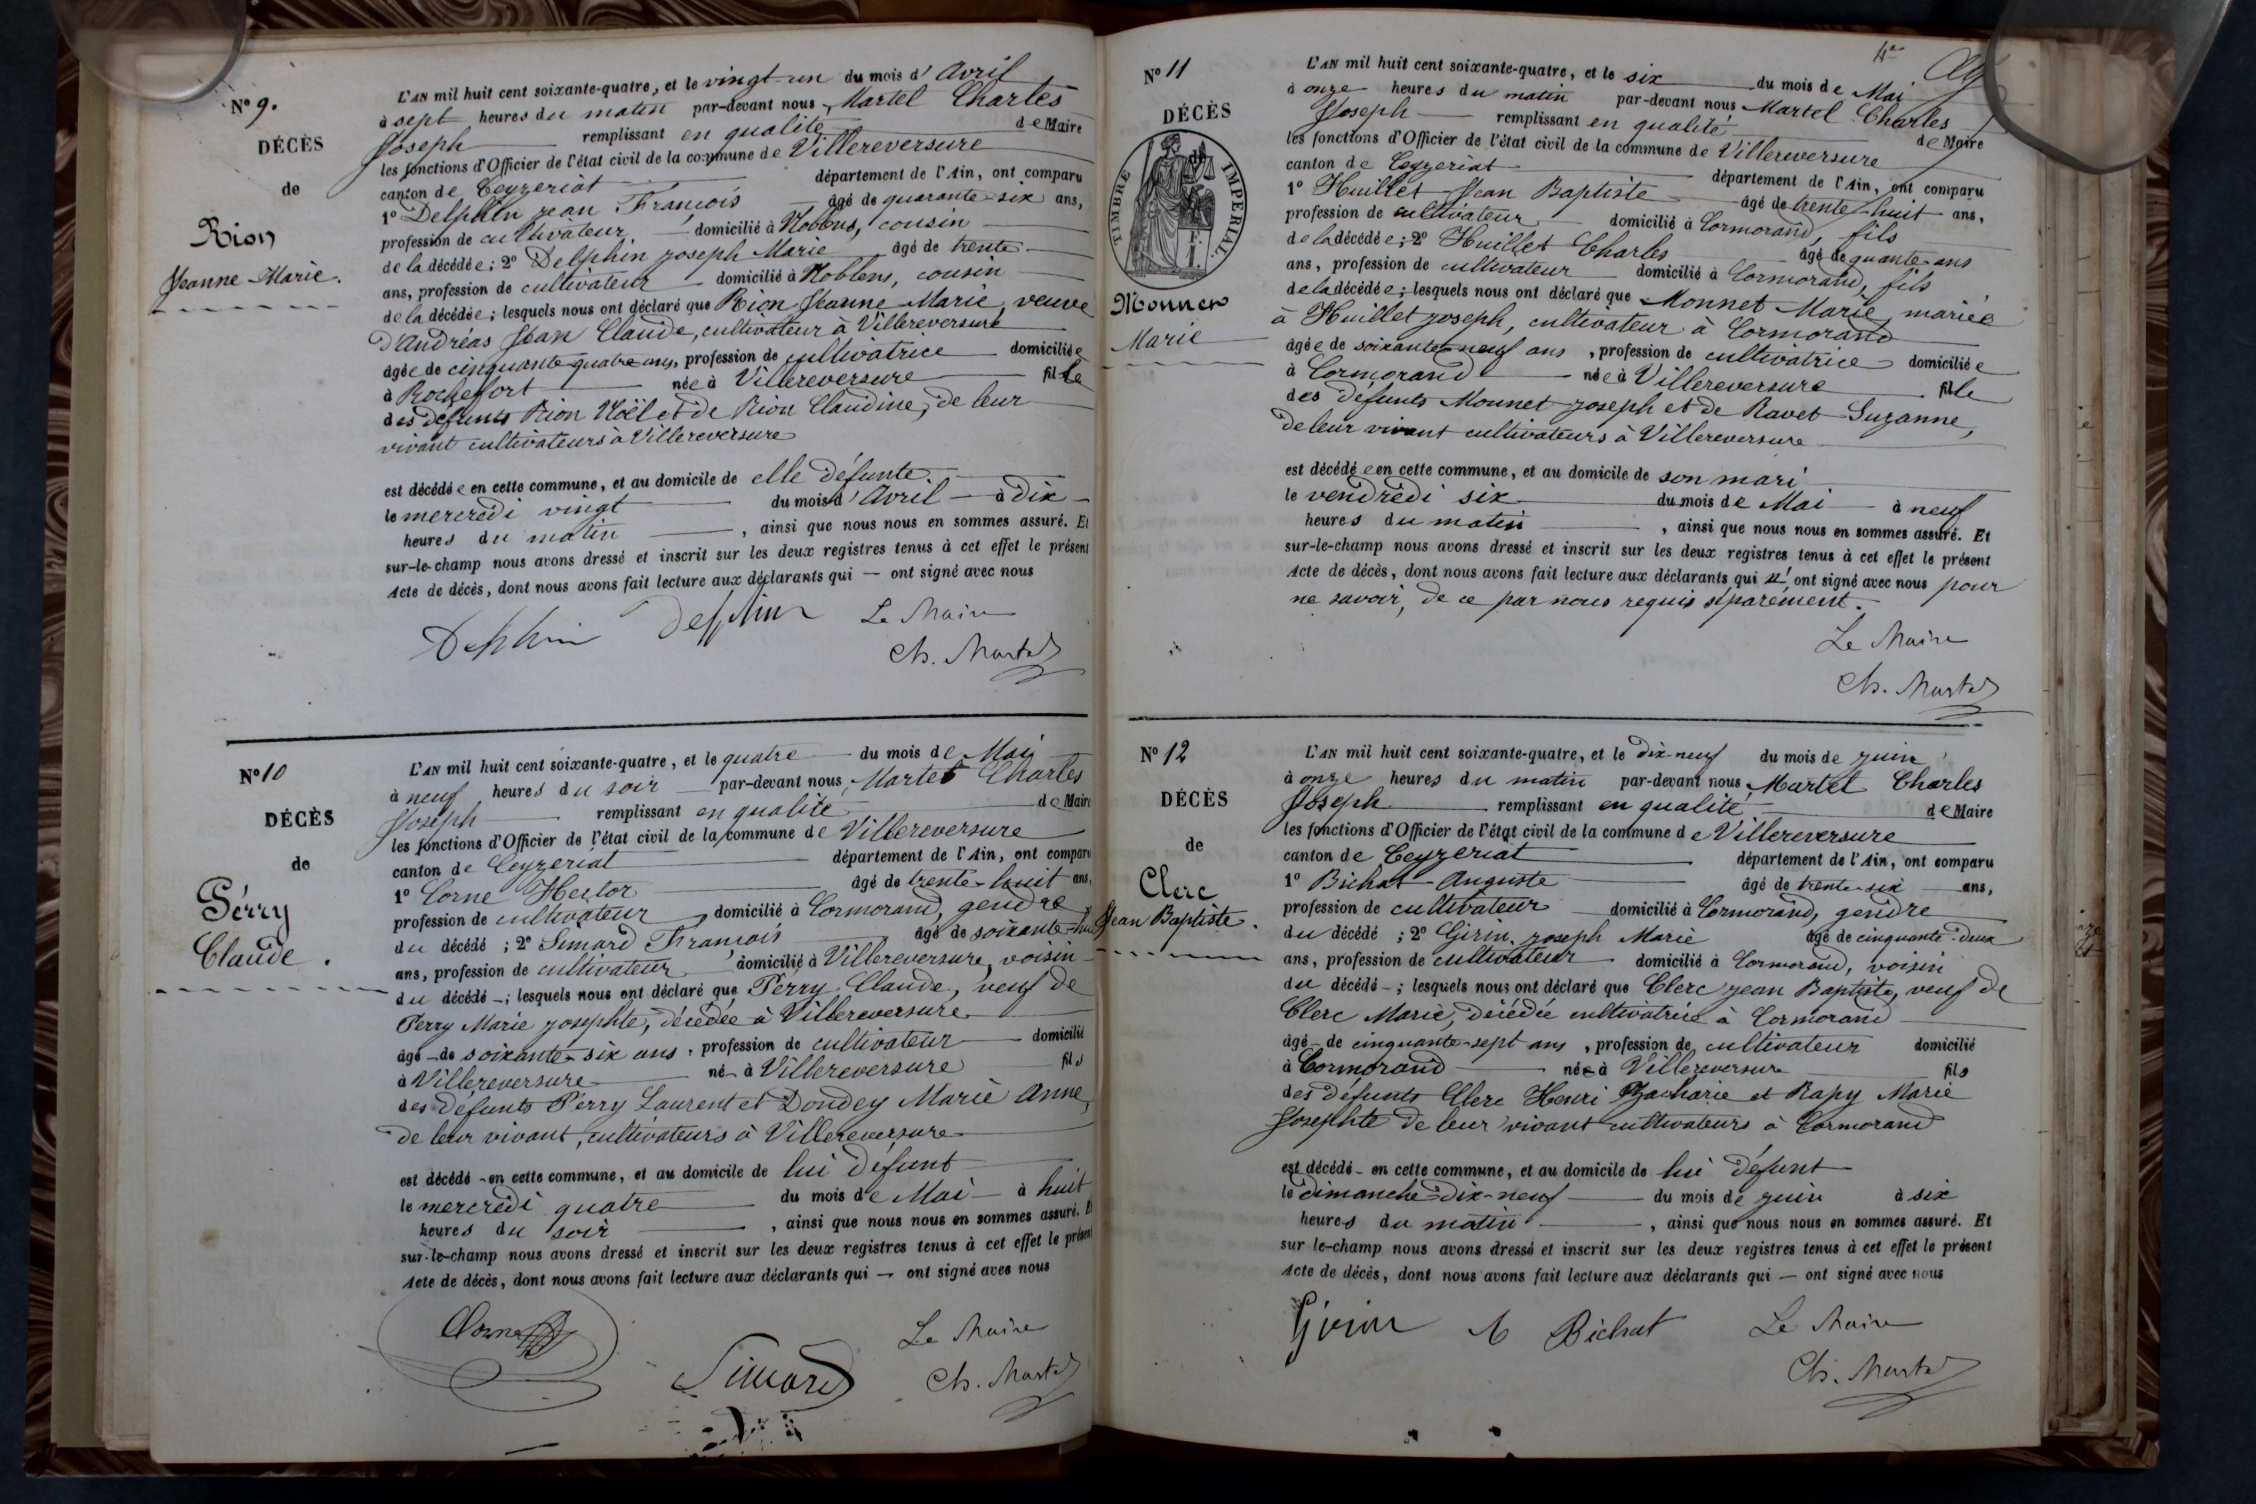 N° 9.
DÉCÈS
de
Rion
Jeanne Marie.
L'AN mil huit cent soixante-quatre, et le vingt-un du mois d'Avril
à sept heures du matin par-devant nous, Martel Charles
Joseph remplissant en qualité de Maire
les fonctions d'Officier de l'état civil de la commune de Villereversure
canton de Ceyzeriat département de l'Ain, ont comparu
1° Delphin jean François âgé de quarante-six ans,
profession de cultivateur domicilié à Noblens, cousin
de la décédée ; 2° Delphin joseph Marie âgé de trente
ans, profession de cultivateur domicilié à Noblens, cousin
de la décédée ; lesquels nous ont déclaré que Rion Jeanne Marie, veuve
d'Andréas Jean Claude, cultivateur à Villereversure
âgée de cinquante quatre ans, profession de cultivatrice domiciliée
à Rochefort née à Villereversure fille
des défunts Rion Noël et de Rion Claudine, de leur
vivant cultivateurs à Villereversure
est décédée en cette commune, et au domicile de elle défunte.
le mercredi vingt du mois d'Avril à dix
heures du matin, ainsi que nous nous en sommes assuré. Et
sur-le-champ nous avons dressé et inscrit sur les deux registres tenus à cet effet le présent
Acte de décès, dont nous avons fait lecture aux déclarants qui — ont signé avec nous
Delphin Delphin Le Maire
Ch. Martel
N° 10
DÉCÈS
de
Pérry
Claude.
L'AN mil huit cent soixante-quatre, et le quatre du mois de Mai
à neuf heures du soir par-devant nous, Martel Charles
Joseph remplissant en qualité de Maire
les fonctions d'Officier de l'état civil de la commune de Villereversure
canton de Ceyzeriat département de l'Ain, ont comparu
1° Corne Hector âgé de trente-huit ans,
profession de cultivateur domicilié à Cormorand, gendre
du décédé ; 2° Simard François âgé de soixante-
ans, profession de cultivateur domicilié à Villereversure, voisin
du décédé — ; lesquels nous ont déclaré que Perry Claude, veuf de
Perry Marie josephte, décédée à Villereversure
âgé — de soixante-six ans, profession de cultivateur domicilié
à Villereversure né — à Villereversure fils
des défunts Pérry Laurent et Doudey Marie Anne,
de leur vivant, cultivateurs à Villereversure
est décédé — en cette commune, et au domicile de lui défunt
le mercredi quatre du mois de Mai à huit
heures du soir, ainsi que nous nous en sommes assuré. E
sur-le-champ nous avons dressé et inscrit sur les deux registres tenus à cet effet le présent
Acte de décès, dont nous avons fait lecture aux déclarants qui — ont signé avec nous
Corne Simard Le Maire
Ch. Martel
N° 11
DÉCÈS
de
TIMBRE IMPERIAL
Monnet
Marie
L'AN mil huit cent soixante-quatre, et le six du mois de Mai
à onze heures du matin par-devant nous Martel Charles
Joseph remplissant en qualité de Maire
les fonctions d'Officier de l'état civil de la commune de Villereversure
canton de Ceyzeriat département de l'Ain, ont comparu
1° Huillet Jean Baptiste âgé de trente-huit ans,
profession de cultivateur domicilié à Cormorand, fils
de la décédée ; 2° Huillet Charles âgé de quante ans
ans, profession de cultivateur domicilié à Cormorand, fils
de la décédée ; lesquels nous ont déclaré que Monnet Marie, mariée
à Huillet joseph, cultivateur à Cormorand
âgée de soixante-neuf ans, profession de cultivatrice domiciliée
à Cormorand née à Villereversure fille
des défunts Monnet joseph et de Ravet Suzanne,
de leur vivant cultivateurs à Villereversure
est décédée en cette commune, et au domicile de son mari
le vendredi six du mois de Mai à neuf
heures du matin, ainsi que nous nous en sommes assuré. Et
sur-le-champ nous avons dressé et inscrit sur les deux registres tenus à cet effet le présent
Acte de décès, dont nous avons fait lecture aux déclarants qui n'ont signé avec nous pour
ne savoir, de ce par nous requis séparément.
Le Maire
Ch. Martel
N° 12
DÉCÈS
de
Clerc
Jean Baptiste.
L'AN mil huit cent soixante-quatre, et le dix-neuf du mois de juin
à onze heures du matin par-devant nous, Martel Charles
Joseph remplissant en qualité de Maire
les fonctions d'Officier de l'état civil de la commune de Villereversure
canton de Ceyzeriat département de l'Ain, ont comparu
1° Bichat Auguste âgé de trente-six ans,
profession de cultivateur domicilié à Cormorand, gendre
du décédé ; 2° Girin joseph Marie âgé de cinquante-deux
ans, profession de cultivateur domicilié à Cormorand, voisin
du décédé — ; lesquels nous ont déclaré que Clerc jean Baptiste, veuf de
Clerc Marie, décédée cultivatrice à Cormorand
âgé — de cinquante-sept ans, profession de cultivateur domicilié
à Cormorand né à Villereversure fils
des défunts Clerc Henri Zacharie et Rapy Marie
Josephte de leur vivant cultivateurs à Cormorand
est décédé — en cette commune, et au domicile de lui défunt
le dimanche dix-neuf du mois de juin à six
heures du matin, ainsi que nous nous en sommes assuré. Et
sur-le-champ nous avons dressé et inscrit sur les deux registres tenus à cet effet le présent
Acte de décès, dont nous avons fait lecture aux déclarants qui — ont signé avec nous
Girin A Bichat Le Maire
Ch. Martel